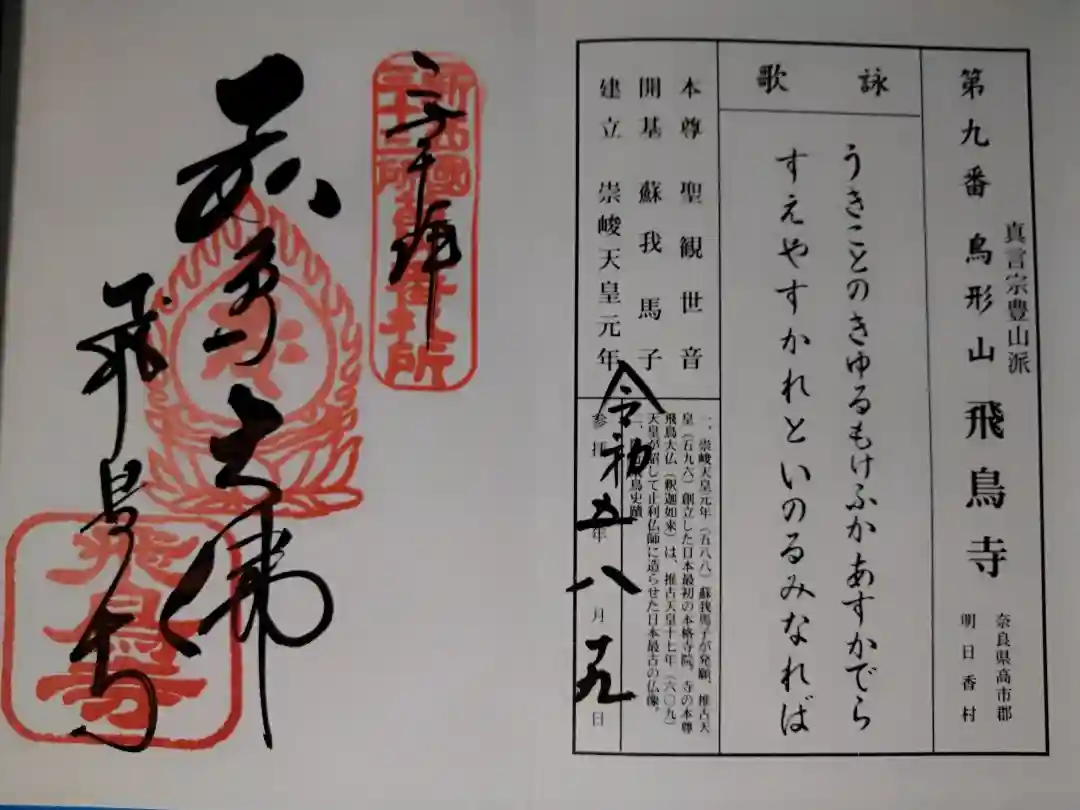 第九番 鳥形山 飛鳥寺
真言宗豊山派
奈良県高市郡
明日香村
詠歌
うきことのきゆるもけふかあすかでら
すえやすかれといのるみなれば
本尊 聖観世音
開基 蘇我馬子
建立 崇峻天皇元年
一、崇峻天皇元年（五八八）蘇我馬子が発願、推古天
皇（五九六）創立した日本最初の本格寺院。寺の本尊
飛鳥大仏（釈迦如来）は、推古天皇十七年（六〇九）
天皇が詔して止利仏師に造らせた日本最古の仏像。
飛鳥史蹟
参拝 令和五年八月十九日
奉拝
新西国
三十三所
飛鳥大佛
飛鳥寺
飛鳥寺